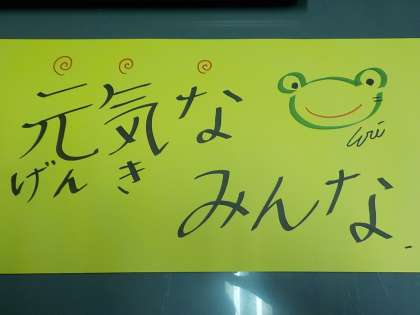 元気な
げんき
みんな